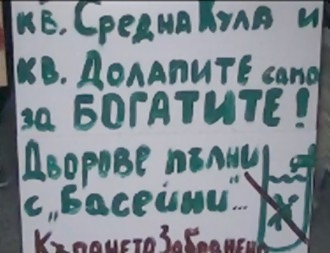 кв. Средна Кула и
кв. Долапите само
за БОГАТИТЕ!
Дворове пълни
с „Басейни"...
Къпането Забранено